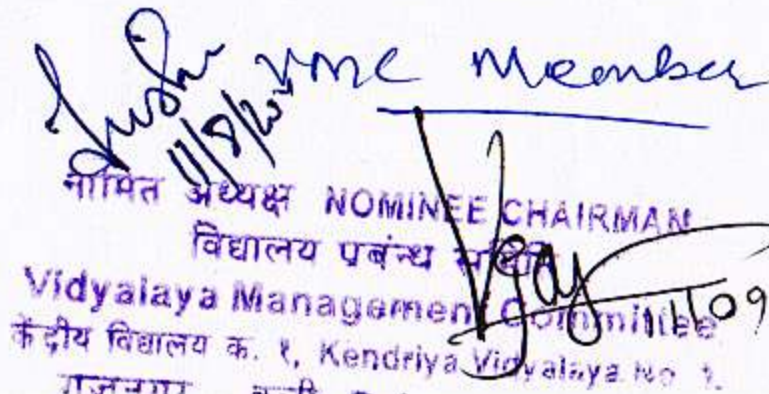 VMC Member
11/8/20
नामित अध्यक्ष NOMINEE CHAIRMAN
विद्यालय प्रबंन्ध समिति
Vidyalaya Management Committee
11/09
केंद्रीय विद्यालय क. १, Kendriya Vidyalaya No. 1.